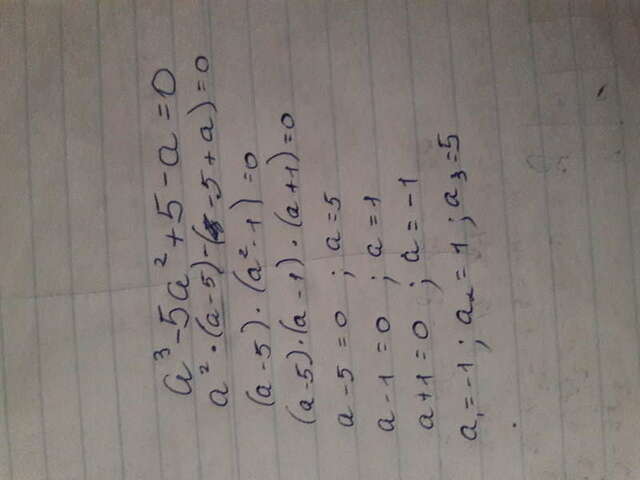 a³-5a²+5-a=0
a²·(a-5)-(-5+a)=0
(a-5)·(a²-1)=0
(a-5)·(a-1)·(a+1)=0
a-5=0 ; a=5
a-1=0 ; a=1
a+1=0 ; a=-1
a₁=-1; a₂=1; a₃=5